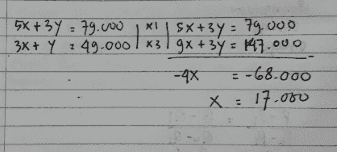 5x + 3y = 79.000 | x1 | 5x + 3y = 79.000
3x + y = 49.000 | x3 | 9x + 3y = 147.000
-4x = -68.000
x = 17.000